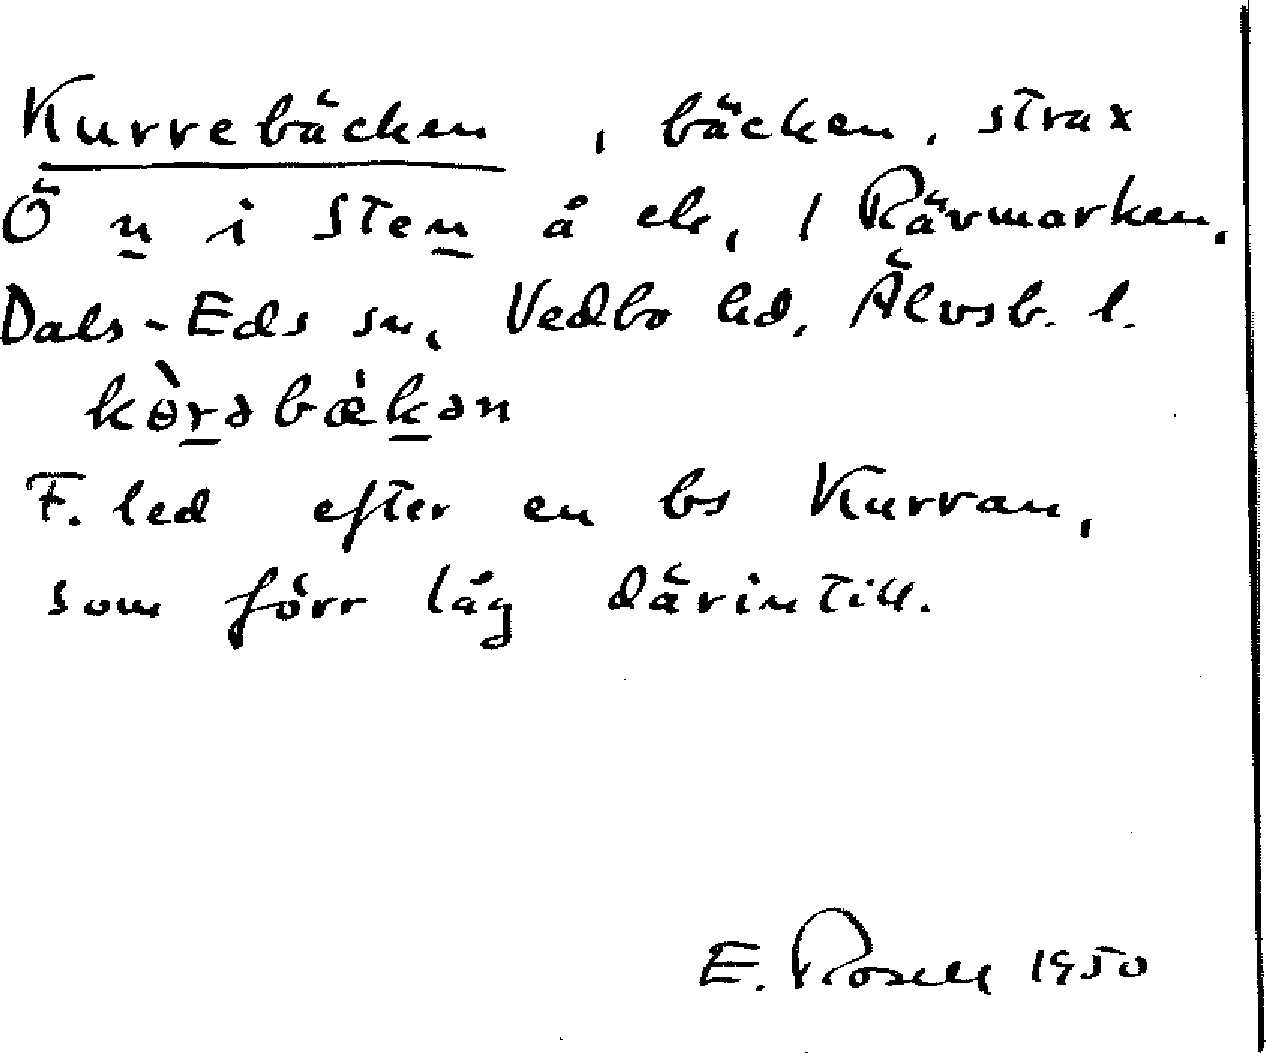 Kurrebäcken, bäcken, strax
Ö n i Sten å ek, 1 Rävmarken,
Dals-Eds sn, Vedbo hd, Älvsb. l.
kɵ̀rəbækən
F. led efter en bs Kurran,
som förr låg därintill.
E. Rosell 1950